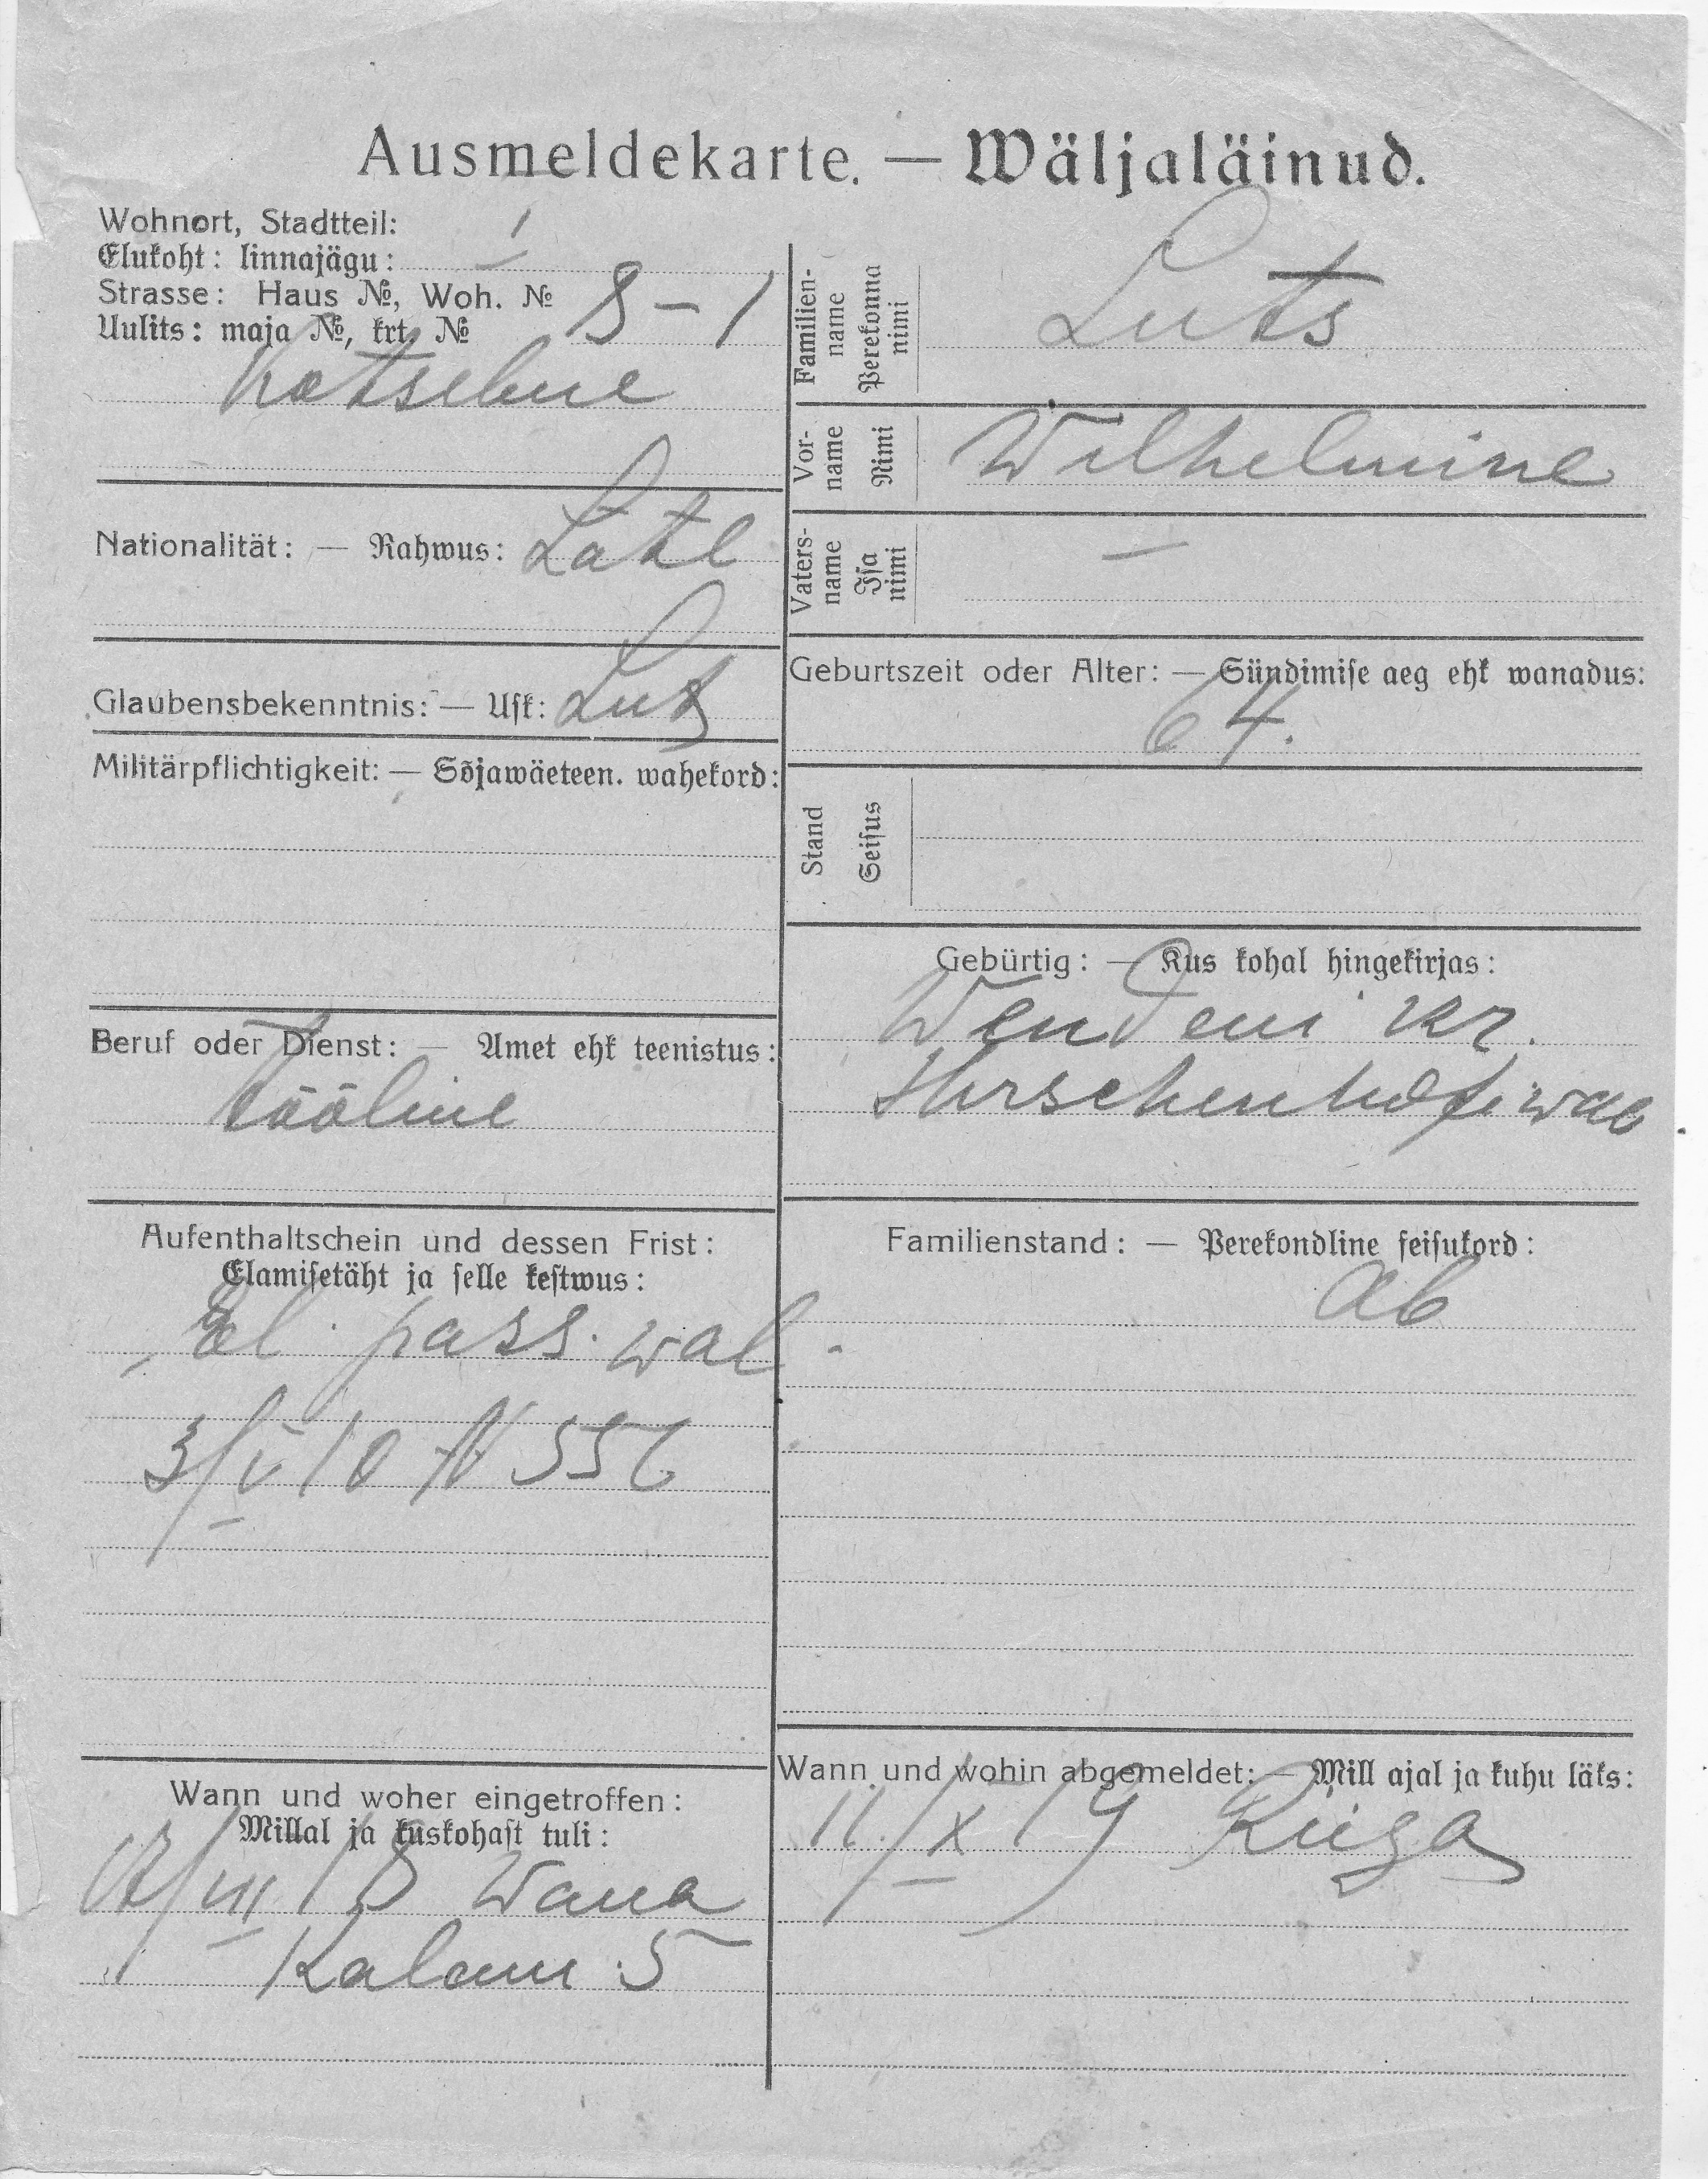 Ausmeldekarte. — Wäljaläinud.
Wohnort, Stadtteil:
Elukoht: linnajägu: I
Strasse: Haus №, Woh. №
Uulits: maja №, krt. № 8–1
Kotsebue
Nationalität: — Rahwus: Lätl
Glaubensbekenntnis: — Usk: Lut
Militärpflichtigkeit: — Sõjawäeteen. wahekord:
Beruf oder Dienst: — Amet ehk teenistus:
Tööline
Aufenthaltschein und dessen Frist:
Elamisetäht ja selle kestwus:
El. pass. wal.
3/V 10 N 556
Wann und woher eingetroffen:
Millal ja kuskohast tuli:
12/III 18 Wana
Kalam 5
Familien-
name
Perekonna
nimi
Luts
Vor-
name
Nimi
Wilhelmine
Vaters-
name
Isa
nimi
—
Geburtszeit oder Alter: — Sündimise aeg ehk wanadus:
64.
Stand
Seisus
Gebürtig: — Kus kohal hingekirjas:
Wendeni kr.
Hirschenhofi wal
Familienstand: — Perekondline seisukord:
ab
Wann und wohin abgemeldet: — Mill ajal ja kuhu läks:
11/X 19 Riiga